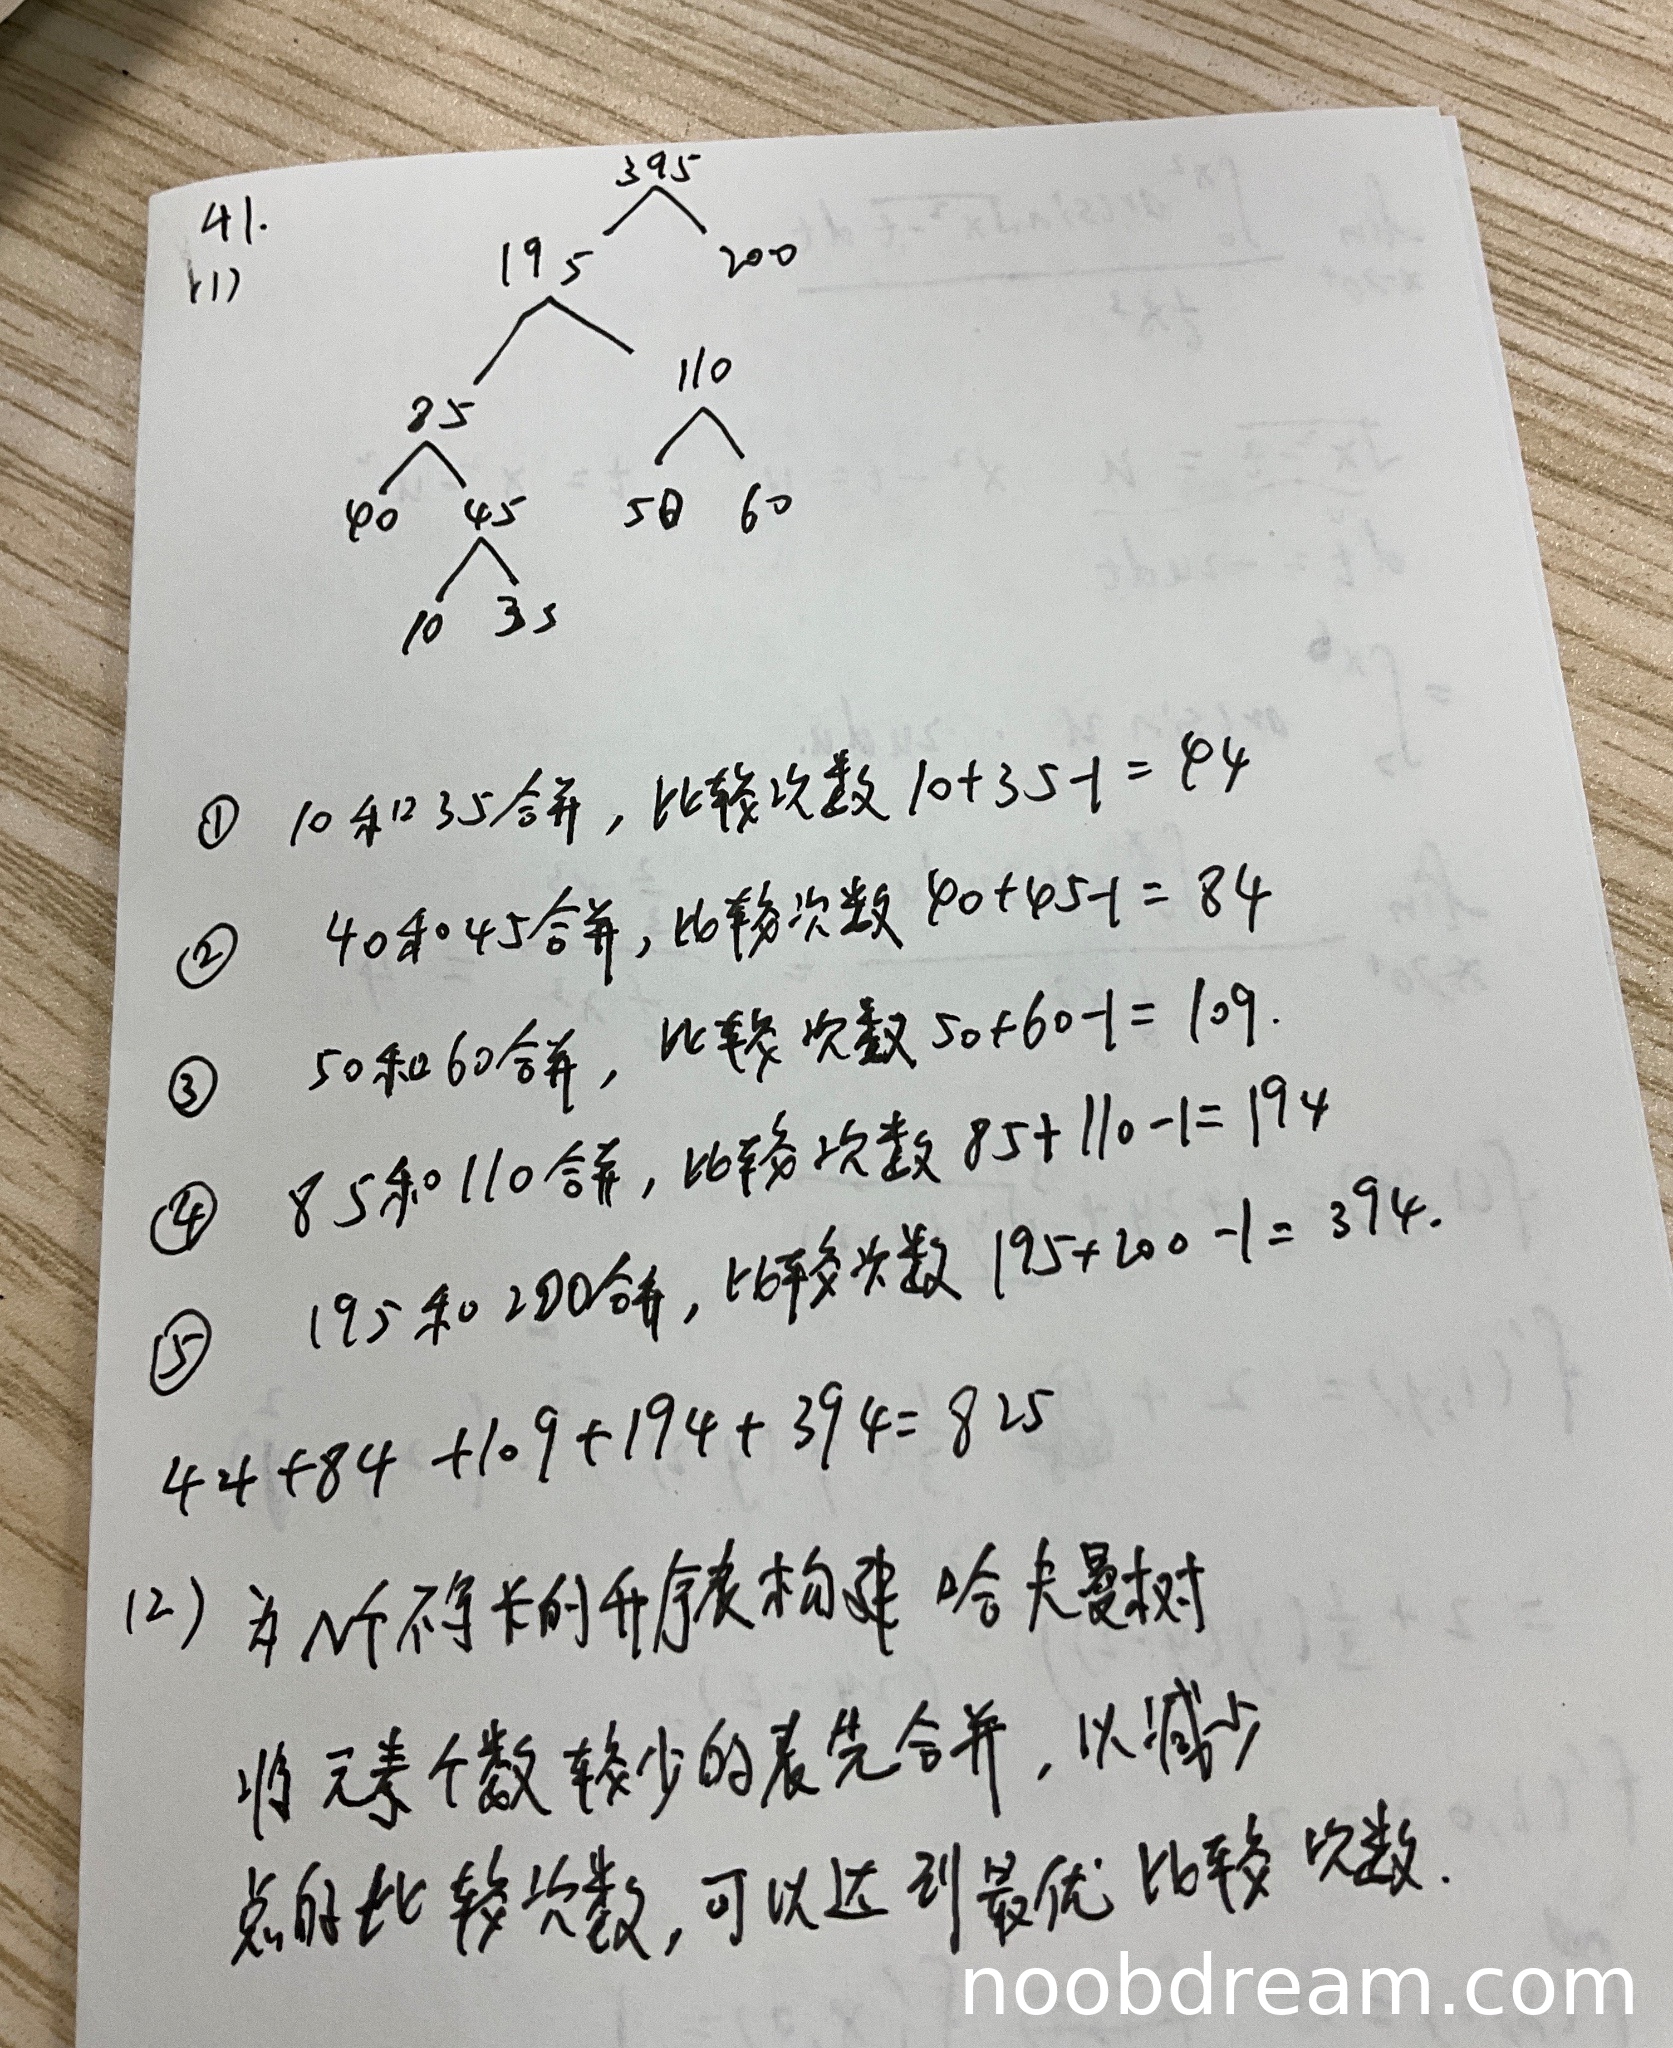 41.
(1)
395
195 200
85 110
40 45 50 60
10 35
① 10和35合并,比较次数 10+35-1=44
② 40和45合并,比较次数 40+45-1=84
③ 50和60合并,比较次数 50+60-1=109.
④ 85和110合并,比较次数 85+110-1=194
⑤ 195和200合并,比较次数 195+200-1=394.
44+84+109+194+394=825
(2) 为N个不等长的升序表构建哈夫曼树
将元素个数较少的表先合并,以减少
总的比较次数,可以达到最优比较次数.
noobdream.com